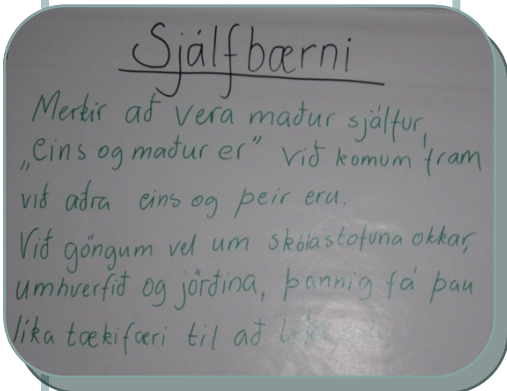 Sjálfbærni
Merkir að vera maður sjálfur,
„eins og maður er" við komum fram
við aðra eins og þeir eru.
Við göngum vel um skólastofuna okkar,
umhverfið og jörðina, þannig fá þau
líka tækifæri til að